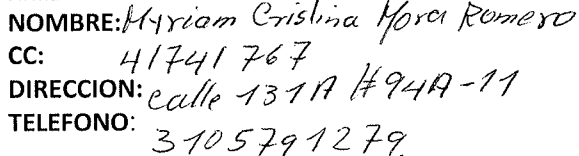 NOMBRE: Myriam Cristina Mora Romero
CC: 41741767
DIRECCION: calle 131A #94A-11
TELEFONO: 3105791279